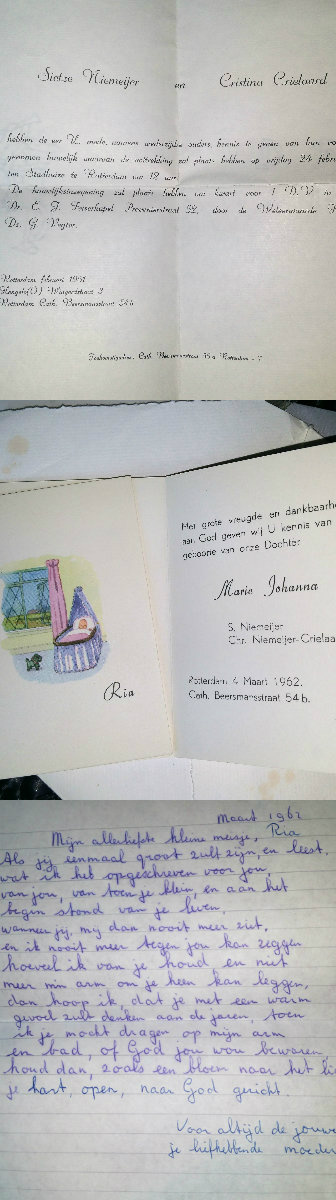 Sietze Niemeijer en Cristina Crielaard
hebben de eer U, mede namens wederzijdse ouders, kennis te geven van hun
genomen huwelijk waarvan de voltrekking zal plaats hebben op vrijdag 24
ten Stadhuize te Rotterdam om 12 uur.
De huwelijksinzegening zal plaats hebben om kwart voor 1 D.V. in
Ds. G. Vegter.
Rotterdam februari 1961
Hengelo (O)
Rotterdam Cath. Beersmansstraat 54 b
Cath. Beersmansstraat Rotterdam - 7
Ria
Met grote vreugde en
aan God geven wij U kennis van
geboorte van onze Dochter
Marie Johanna
S. Niemeijer
Chr. Niemeijer-
Rotterdam 4 Maart 1962.
Cath. Beersmansstraat 54 b.
Maart 1962
Mijn allerliefste kleine meisje, Ria
Als jij eenmaal groot zult zijn, en leest,
wat ik heb opgeschreven voor jou,
van jou, van toen je klein en aan het
begin stond van je leven,
wanneer jij, mij dan nooit meer ziet,
en ik nooit meer tegen jou kan zeggen
hoeveel ik van je houd en niet
meer mijn arm om je heen kan leggen,
dan hoop ik, dat je met een warm
gevoel zult denken aan de jaren, toen
ik je mocht dragen op mijn arm
en bad, of God jou wou bewaren
houd dan, zoals een bloem naar het
je hart, open, naar God gericht.
Voor altijd de
je liefhebbende moeder